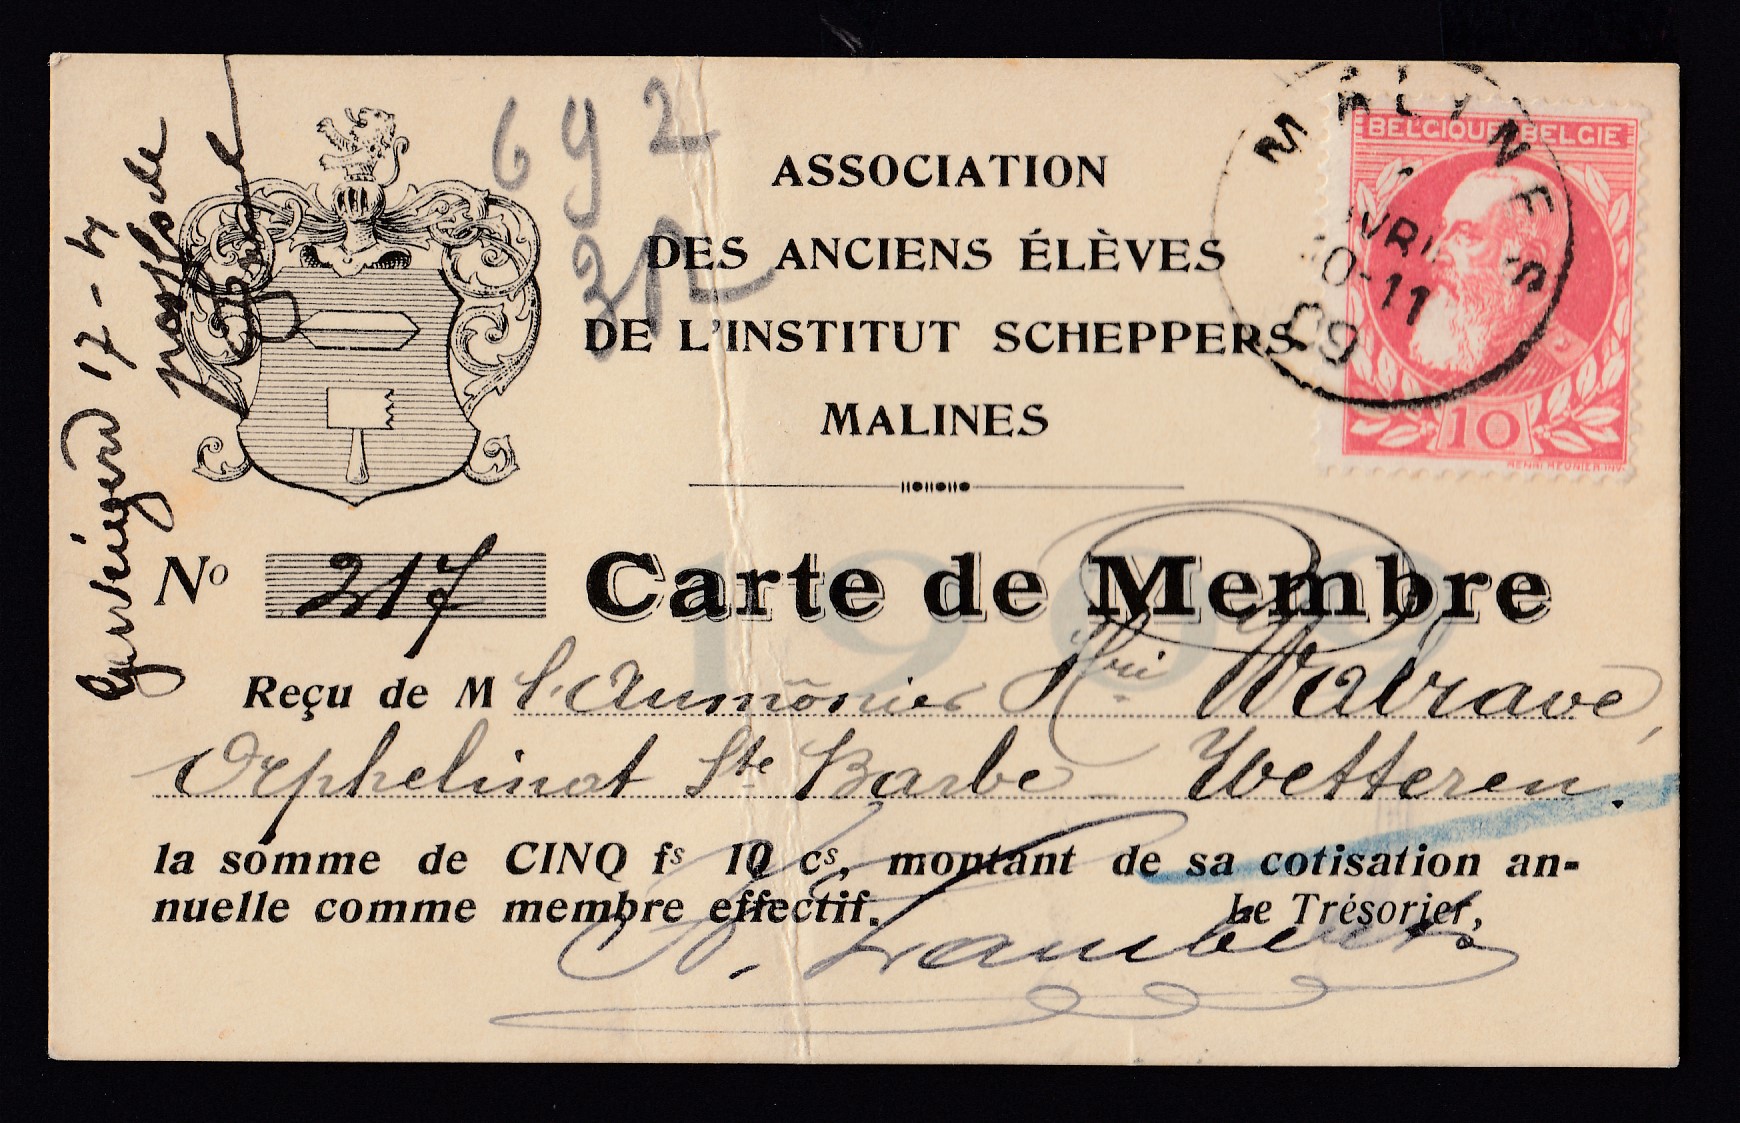 692
32
ASSOCIATION
DES ANCIENS ÉLÈVES
DE L'INSTITUT SCHEPPERS
MALINES
BELGIQUE BELGIE
10
HENRI MEUNIER INV.
MALINES
10-11
09
17-4
1909
No 217 Carte de Membre
Reçu de M l'Aumônier Hri Walrave,
Orphelinat Ste Barbe Wetteren.
la somme de CINQ fs 10 cs, montant de sa cotisation an-
nuelle comme membre effectif. Le Trésorier,